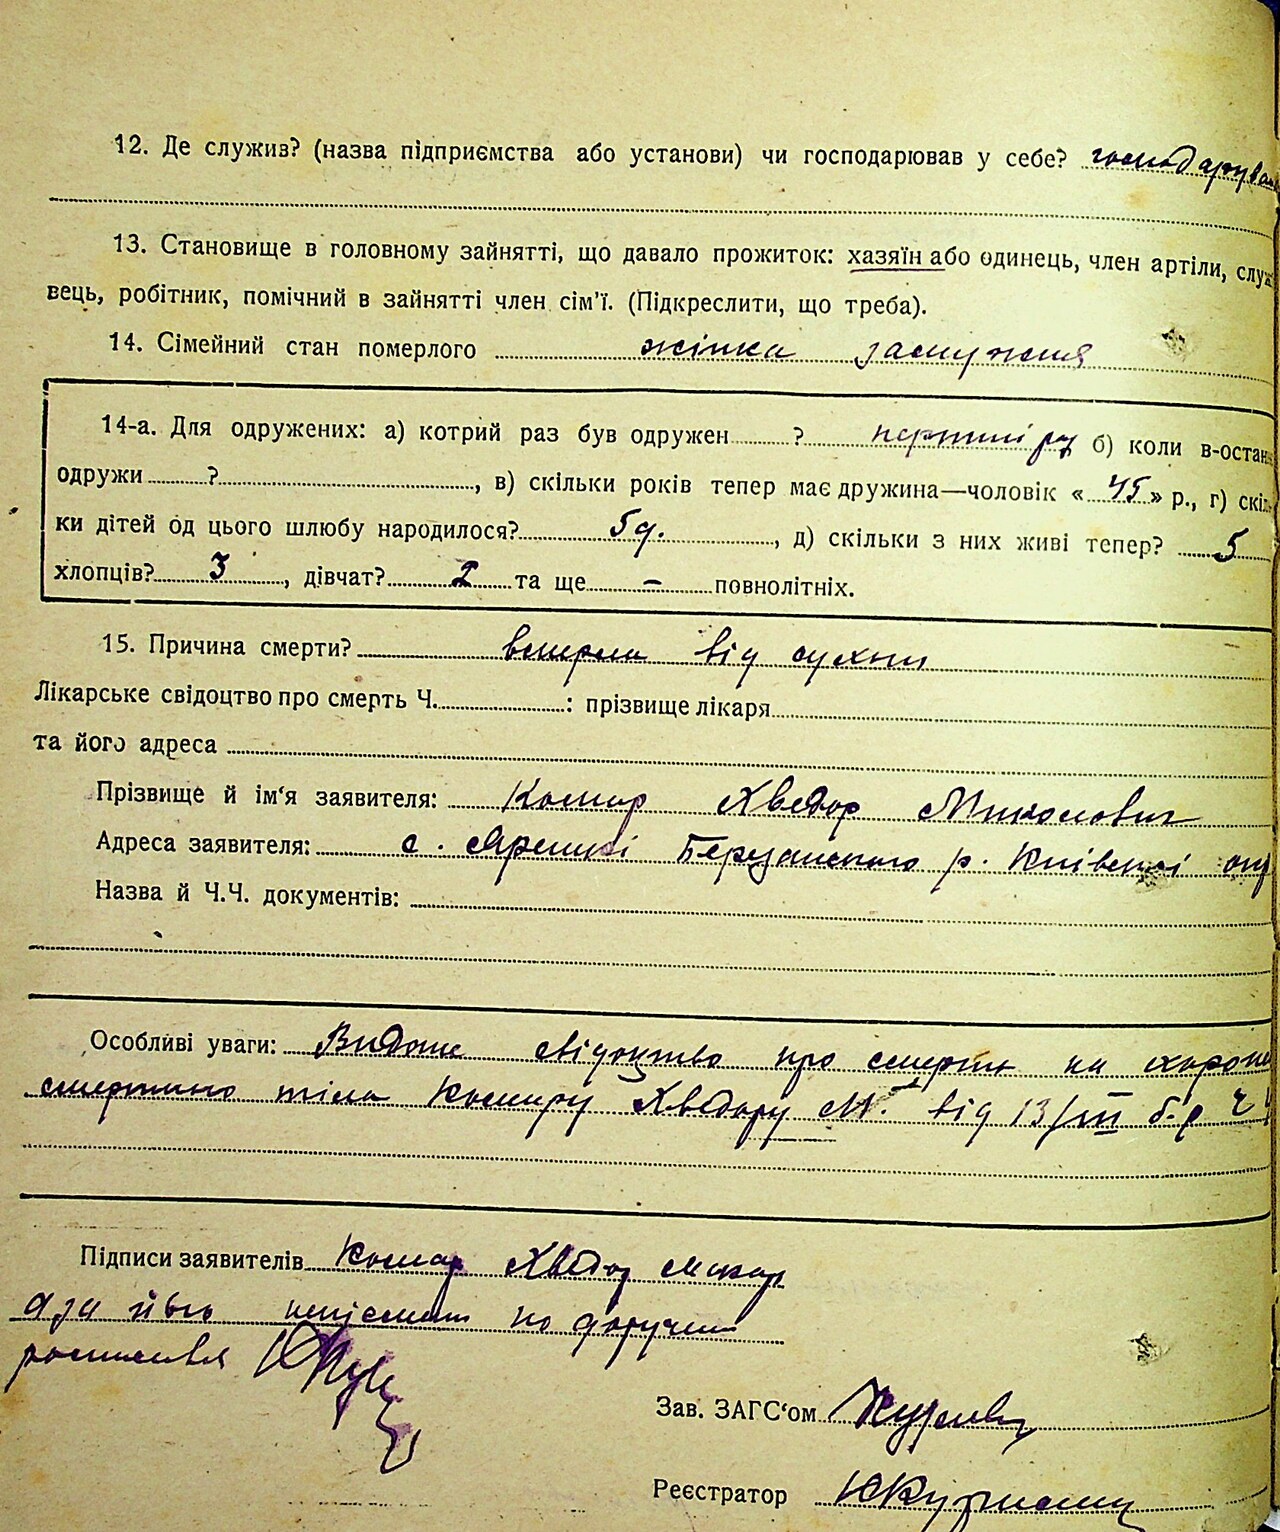 12. Де служив? (назва підприємства або установи) чи господарював у себе? господарував
13. Становище в головному зайнятті, що давало прожиток: хазяїн або одинець, член артіли, служ
вець, робітник, помічний в зайнятті член сім'ї. (Підкреслити, що треба).
14. Сімейний стан померлого жінка замужня
14-а. Для одружених: а) котрий раз був одружен ? перший раз б) коли в-остан
одружи ? , в) скільки років тепер має дружина—чоловік « 45 » р., г) скіль
ки дітей од цього шлюбу народилося? 5 д. , д) скільки з них живі тепер? 5
хлопців? 3 , дівчат? 2 та ще – повнолітніх.
15. Причина смерти? вмерла від сухот
Лікарське свідоцтво про смерть Ч. : прізвище лікаря
та його адреса
Прізвище й ім'я заявителя: Комар Хведор Миколович
Адреса заявителя: с. Ярешкі Березанського р. Київскі окр
Назва й Ч.Ч. документів:
Особливі уваги: Видане свідоцтво про смерть на схорон
смертного тіла Комару Хведору М. від 13/III б-р Ч
Підписи заявителів Комар Хведор
а за його неписьмен по доручен
росписався
Зав. ЗАГС'ом
Реєстратор